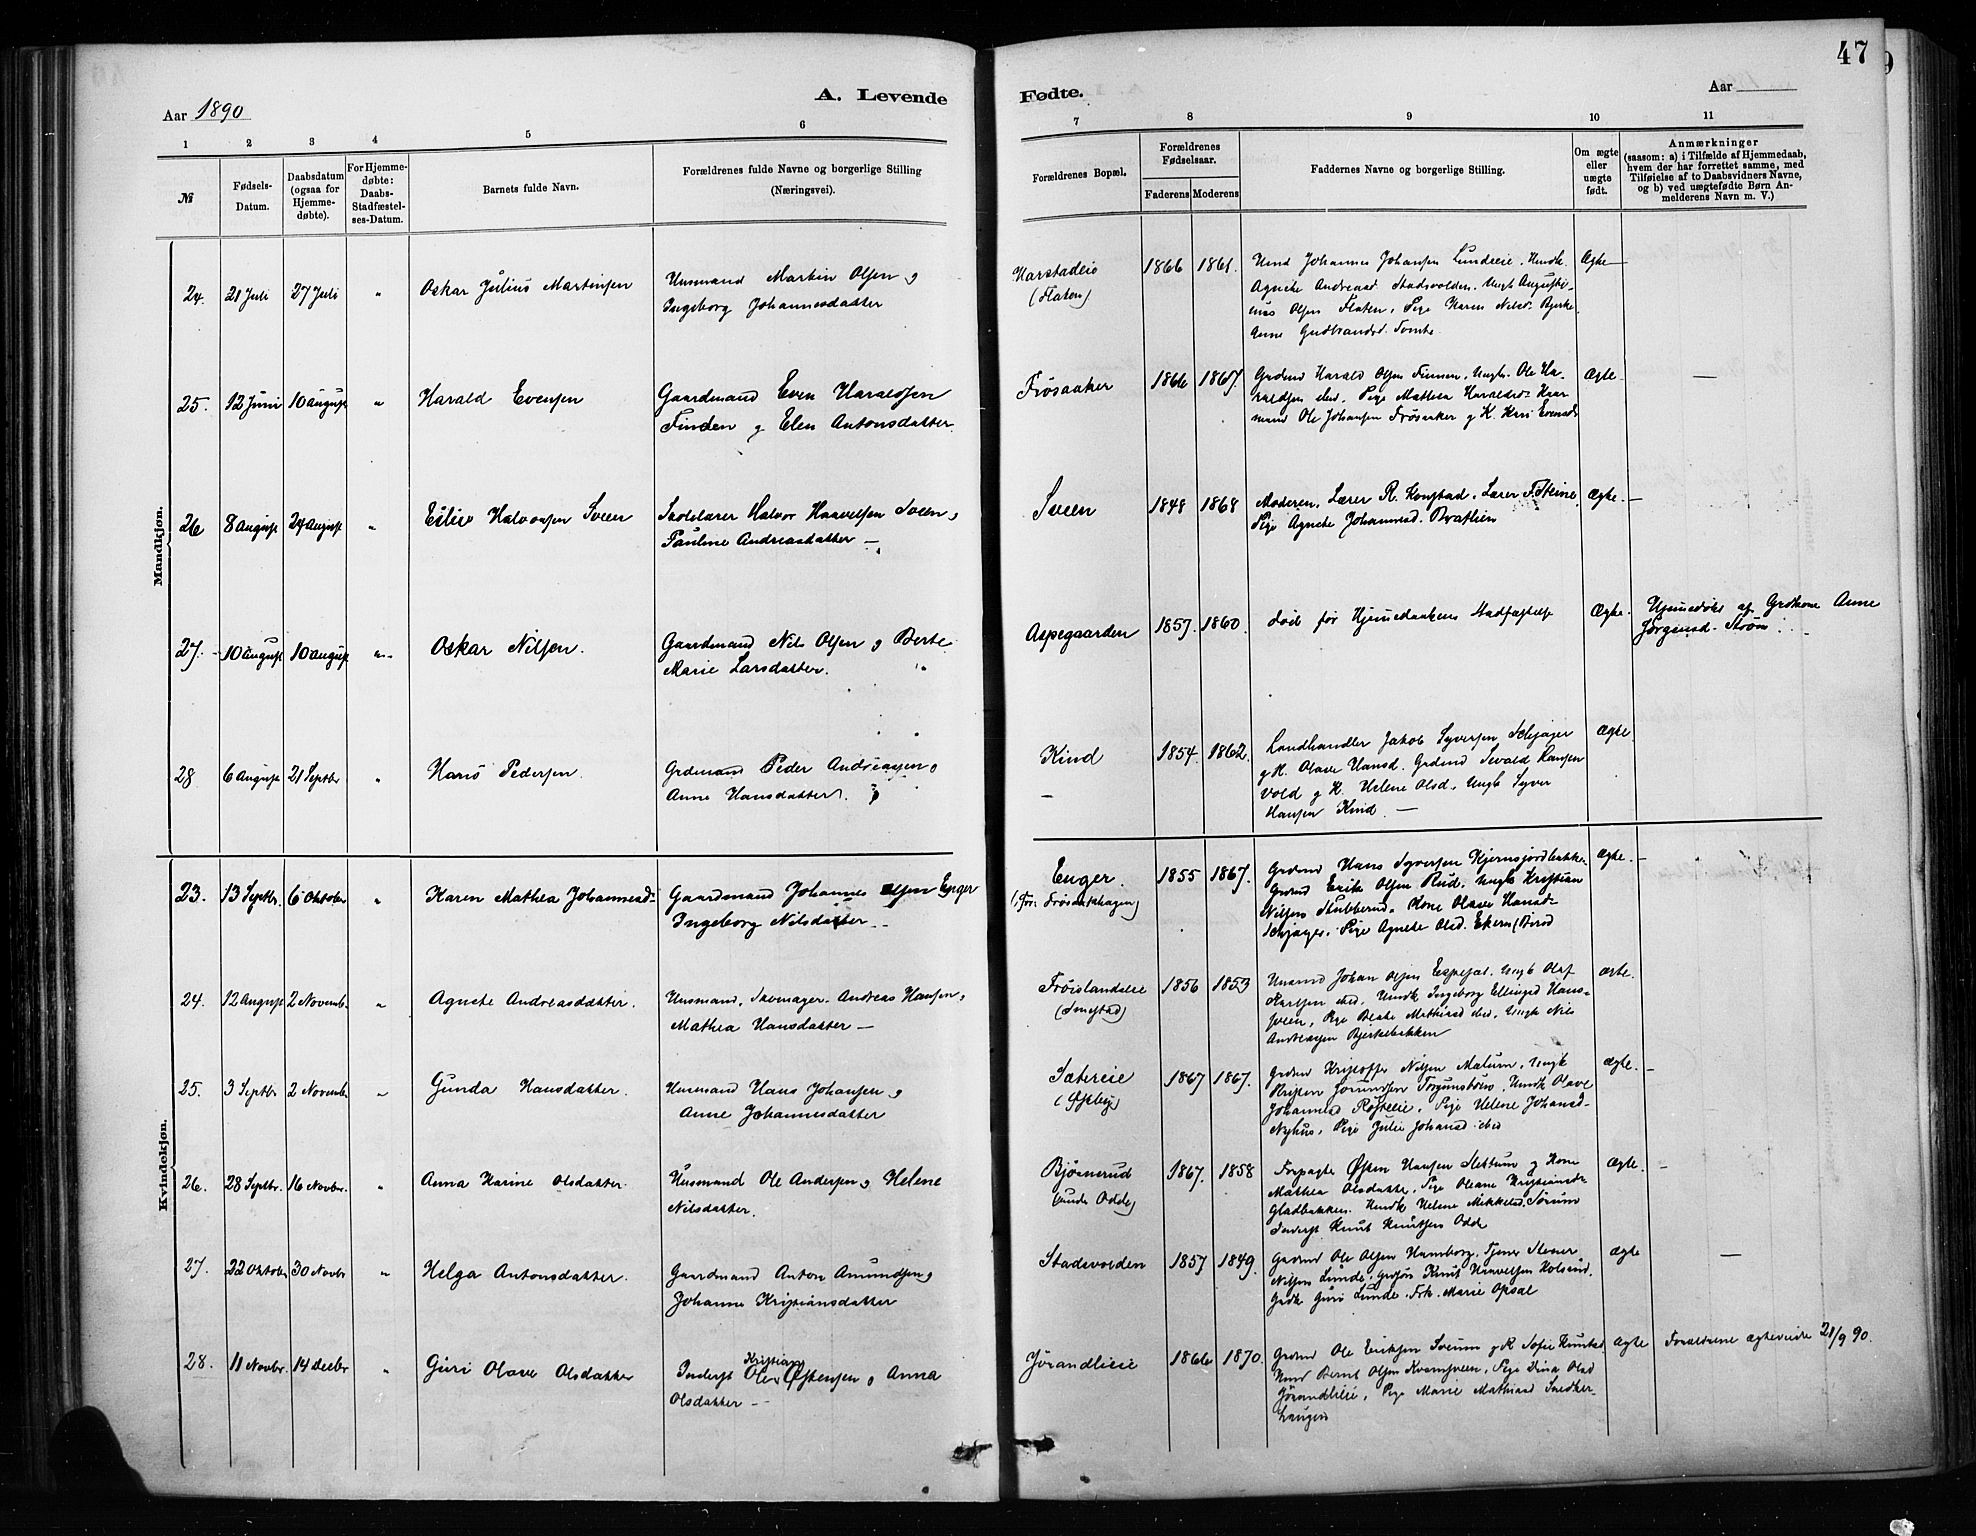 47
Aar 1890
A. Levende
Fødte.
Aar
1 2 3 4 5 6 7 8 9 10 11
№
Fødsels-
Datum.
Daabsdatum
(ogsaa for
Hjemme-
døbte).
For Hjemme-
døbte:
Daabs-
Stadfæstel-
ses-Datum.
Barnets fulde Navn.
Forældrenes fulde Navne og borgerlige Stilling
(Næringsvei).
Forældrenes Bopæl.
Forældrenes
Fødselsaar.
Faderens Moderens
Faddernes Navne og borgerlige Stilling.
Om ægte
eller
uægte
født.
Anmærkninger
(saasom: a) i Tilfælde af Hjemmedaab,
hvem der har forrettet samme, med
Tilføielse af to Daabsvidners Navne,
og b) ved uægtefødte Børn An-
melderens Navn m. V.)
Mandkjøn.
24. 21 Juli 27 Juli " Oskar Julius Martinsen
Husmand Martin Olsen og
Ingeborg Johannesdatter
Harstadeie
(Flaten)
1866 1861.
Husmd Johannes Johansen Lundeie. Husmk.
Agnete Andreasd Stadsvolden. Ungk Augusti-
nus Olsen Flaten, Pige Karen Nilsd. Bjerke
Anne Gudbrandsd. Tomte.
Ægte
25. 12 Juni 10 August " Harald Evensen
Gaardmand Even Haraldsen
Finden og Elen Antonsdatter
Frøsaaker
1866 1867.
Grdmd Harald Olsen Finnen, Ungk. Ole Ha-
raldsen ibid. Pige Mathea Haraldsd.
mand Ole Johansen Frøsaaker og K. Kari Evensd.
Ægte
26 8 August 24 August " Eiliv Halvorsen Sveen
Skolelærer Halvor Haavelsen Sveen og
Pauline Andreasdatter —
Sveen
1848 1868
Moderen, Lærer R. Kongstad. Lærer F. Steine,
Pige Agnete Johannesd. Bratlien
Ægte.
27. 10 August 10 August " Oskar Nilsen.
Gaardmand Nils Olsen og Berte
Marie Larsdatter.
Aspegaarden
1857. 1860.
død før Hjemmedaabens Stadfæstelse
Ægte.
Hjemmedøbt af Grdkone Anne
Jørgensd. Strøm
28 6 August 21 Septbr " Hans Pedersen
Grdmand Peder Andreassen og
Anne Hansdatter.
Kind
1854. 1862.
Landhandler Jakob Syversen Schjager
og K. Olave Hansd. Grdmd Sevald Hansen
Vold og K. Helene Olsd. Ungk Syver
Hansen Kind. —
Ægte
Kvindekjøn.
23. 13 Septbr. 6 Oktober " Karen Mathea Johannesd-
Gaardmand Johannes Olsen Enger
Ingeborg Nilsdatter --
Enger.
1855 1867.
Grdmd Hans Syversen Kjernsjordbakke
Grdmd Erik Olsen Rud. Ungk Kristian
Nilsen Stubberud. Kone Olave Hansd-
Schjager. Pige Agnete Olsd. Ekern
Ægte.
24. 12 August 2 Novembr. " Agnete Andreasdatter.
Husmand, Skomager Andreas Hansen og
Mathea Hansdatter —
Frøislandeie
(Smestad)
1856 1853
Husmd Johan Olsen Espesæt. Ungk Olaf
Karlsen ibid. Husmk Ingeborg Ellingsd Hans-
sveen, Pige Beate Mathiasd ibid, Ungk Nils
Andreassen Bjerkebakken
Ægte.
25. 3 Septbr 2 Novembr. " Gunda Hansdatter.
Husmand Hans Johansen og
Anne Johannesdatter
Sætereie
1867 1867.
Grdmd Kristoffer Nilsen Matum, Ungk
Kristen
Johannesd Røsteeie, Pige Helene Johansd-
Nyhus, Pige Julie Johansd ibid
Ægte.
26. 28 Septbr. 16 Novbr. " Anna Karine Olsdatter.
Husmand Ole Andersen og Helene
Nilsdatter.
Bjørnerud
(under Odde)
1867. 1858
Forpagter Østen Hansen Slettum og Kone
Mathea Olsdatter. Pige Oleane Kristiansd-
Gladbakken. Husmk Helene Mikkelsd. Sørum
Inderst Knut Knutsen Odde
Ægte.
27. 22 Oktober 30 Novbr " Helga Antonsdatter.
Gaardmand Anton Amundsen og
Johanne Kristiansdatter
Stadsvolden
1857 1849.
Grdmd Ole Olsen Hamborg. Tjener Stener
Nilsen Lunde, Grdsøn Knut Haavelsen Holsend.
Grdk Guri Lunde. Frk. Marie Opsal
Ægte
28. 11 Novbr. 14 Decbr " Guri Olave Olsdatter
Inderst Ole Kristian Østensen og Anna
Olsdatter --
Jørandlieie
1866 1870.
Grdmd Ole Eriksen Sørum og K Sofie Knutsd
Husmd Bernt Olsen Kvernsveen, Pige Dina Olsd
Jørandlieie, Pige Marie Mathiasd Snedker-
haugen
Ægte
Forældrene ægteviede 28/9 90.